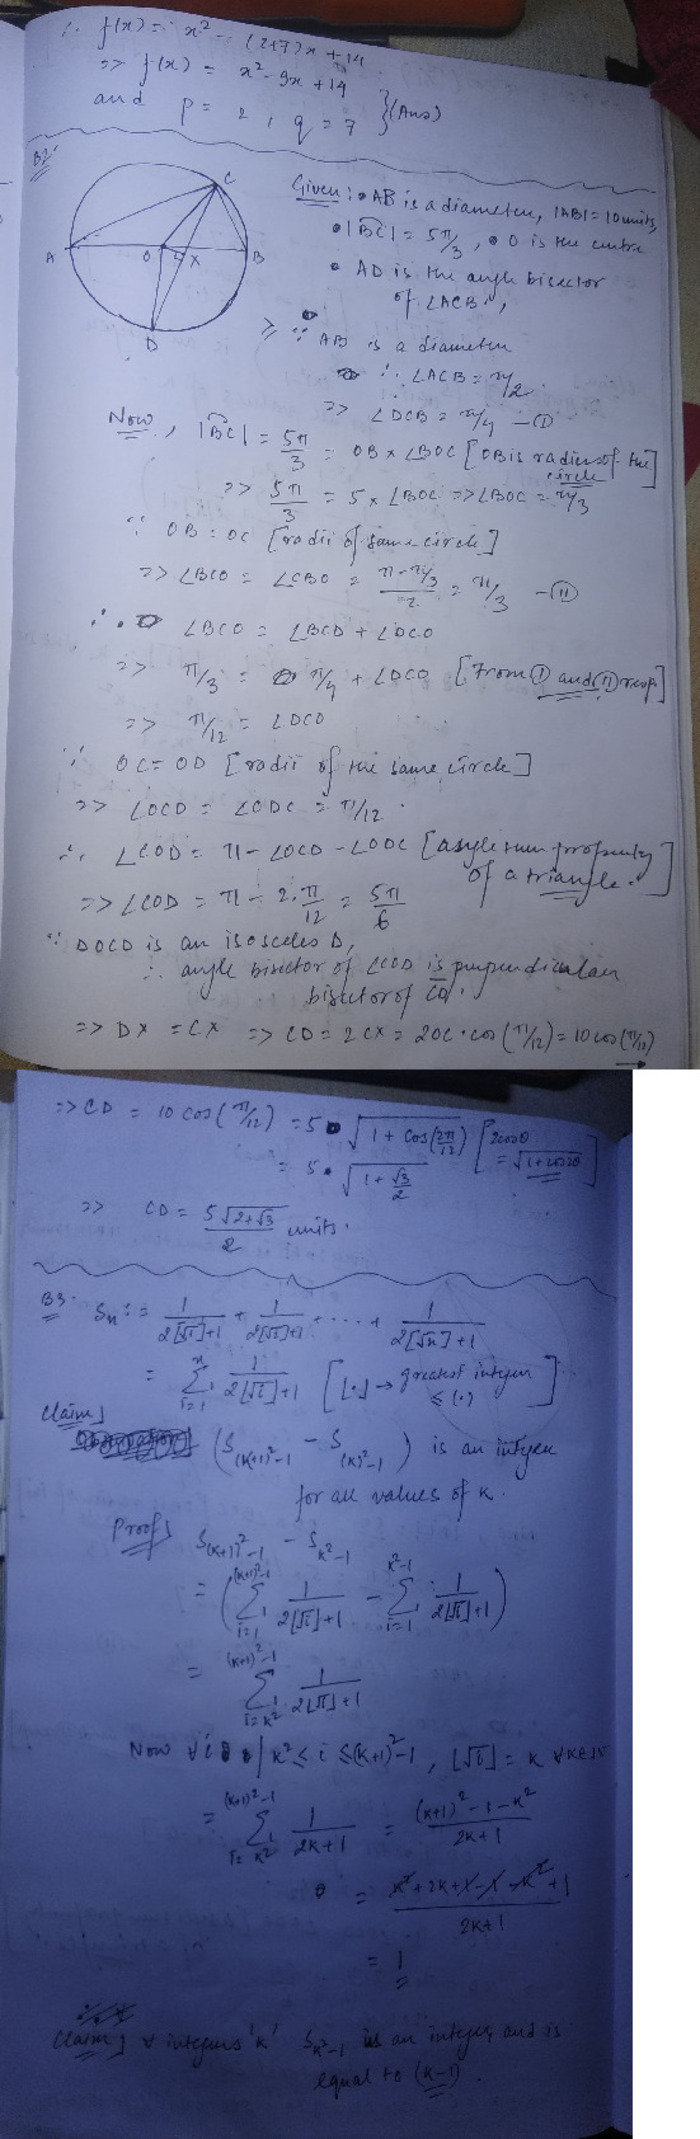 ∴ f(x) = x² - (2+7)x + 14
=> f(x) = x² - 9x + 14
and p = 2, q = 7 } (Ans)
B2.
A O X B C D
Given: • AB is a diameter, |AB| = 10 units,
• |B͡C| = 5π/3, • O is the centre
• AD is the angle bisector
of ∠ACB.,
=> ∵ AB is a diameter
∴ ∠ACB = π/2
=> ∠DCB = π/4 - (I)
Now, |B͡C| = 5π/3 = OB × ∠BOC [OB is radius of the circle]
=> 5π/3 = 5 × ∠BOC => ∠BOC = π/3
∵ OB = OC [radii of same circle]
=> ∠BCO = ∠CBO = (π - π/3)/2 = π/3 - (II)
∴ ∠BCO = ∠BCD + ∠DCO
=> π/3 = π/4 + ∠DCO [From (I) and (II) resp.]
=> π/12 = ∠DCO
∵ OC = OD [radii of the same circle]
=> ∠OCD = ∠CDC = π/12.
∴ ∠COD = π - ∠OCD - ∠ODC [angle sum property of a triangle.]
=> ∠COD = π - 2.π/12 = 5π/6
∵ ΔOCD is an isosceles Δ,
∴ angle bisector of ∠COD is perpendicular
bisector of CD.
=> DX = CX => CD = 2CX = 2OC.cos(π/12) = 10cos(π/12)
→
=> CD = 10cos(π/12) = 5 • √(1 + cos(2π/12)) [2cosθ = √(1+cos2θ)]
= 5 • √(1 + √3/2)
=> CD = 5√(2+√3)/2 units.
B3. Sₙ := 1/(2[√1]+1) + 1/(2[√2]+1) + ... + 1/(2[√n]+1)
= Σ_{i=1}^{n} 1/(2[√i]+1) [[.] → greatest integer ≤ (.)]
Claim] (S_{(K+1)²-1} - S_{(K)²-1}) is an integer
for all values of K.
Proof] S_{(K+1)²-1} - S_{K²-1}
= (Σ_{i=1}^{(K+1)²-1} 1/(2⌊√i⌋+1) - Σ_{i=1}^{K²-1} 1/(2⌊√i⌋+1))
= Σ_{i=K²}^{(K+1)²-1} 1/(2⌊√i⌋+1)
Now ∀i | K² ≤ i ≤ (K+1)²-1, ⌊√i⌋ = K ∀K∈N
= Σ_{i=K²}^{(K+1)²-1} 1/(2K+1) = ((K+1)²-1-K²)/(2K+1)
= (K²+2K+1-1-K²+1)/(2K+1)
= 1
Claim] ∀ integers 'K' S_{K²-1} is an integer and is
equal to (K-1).